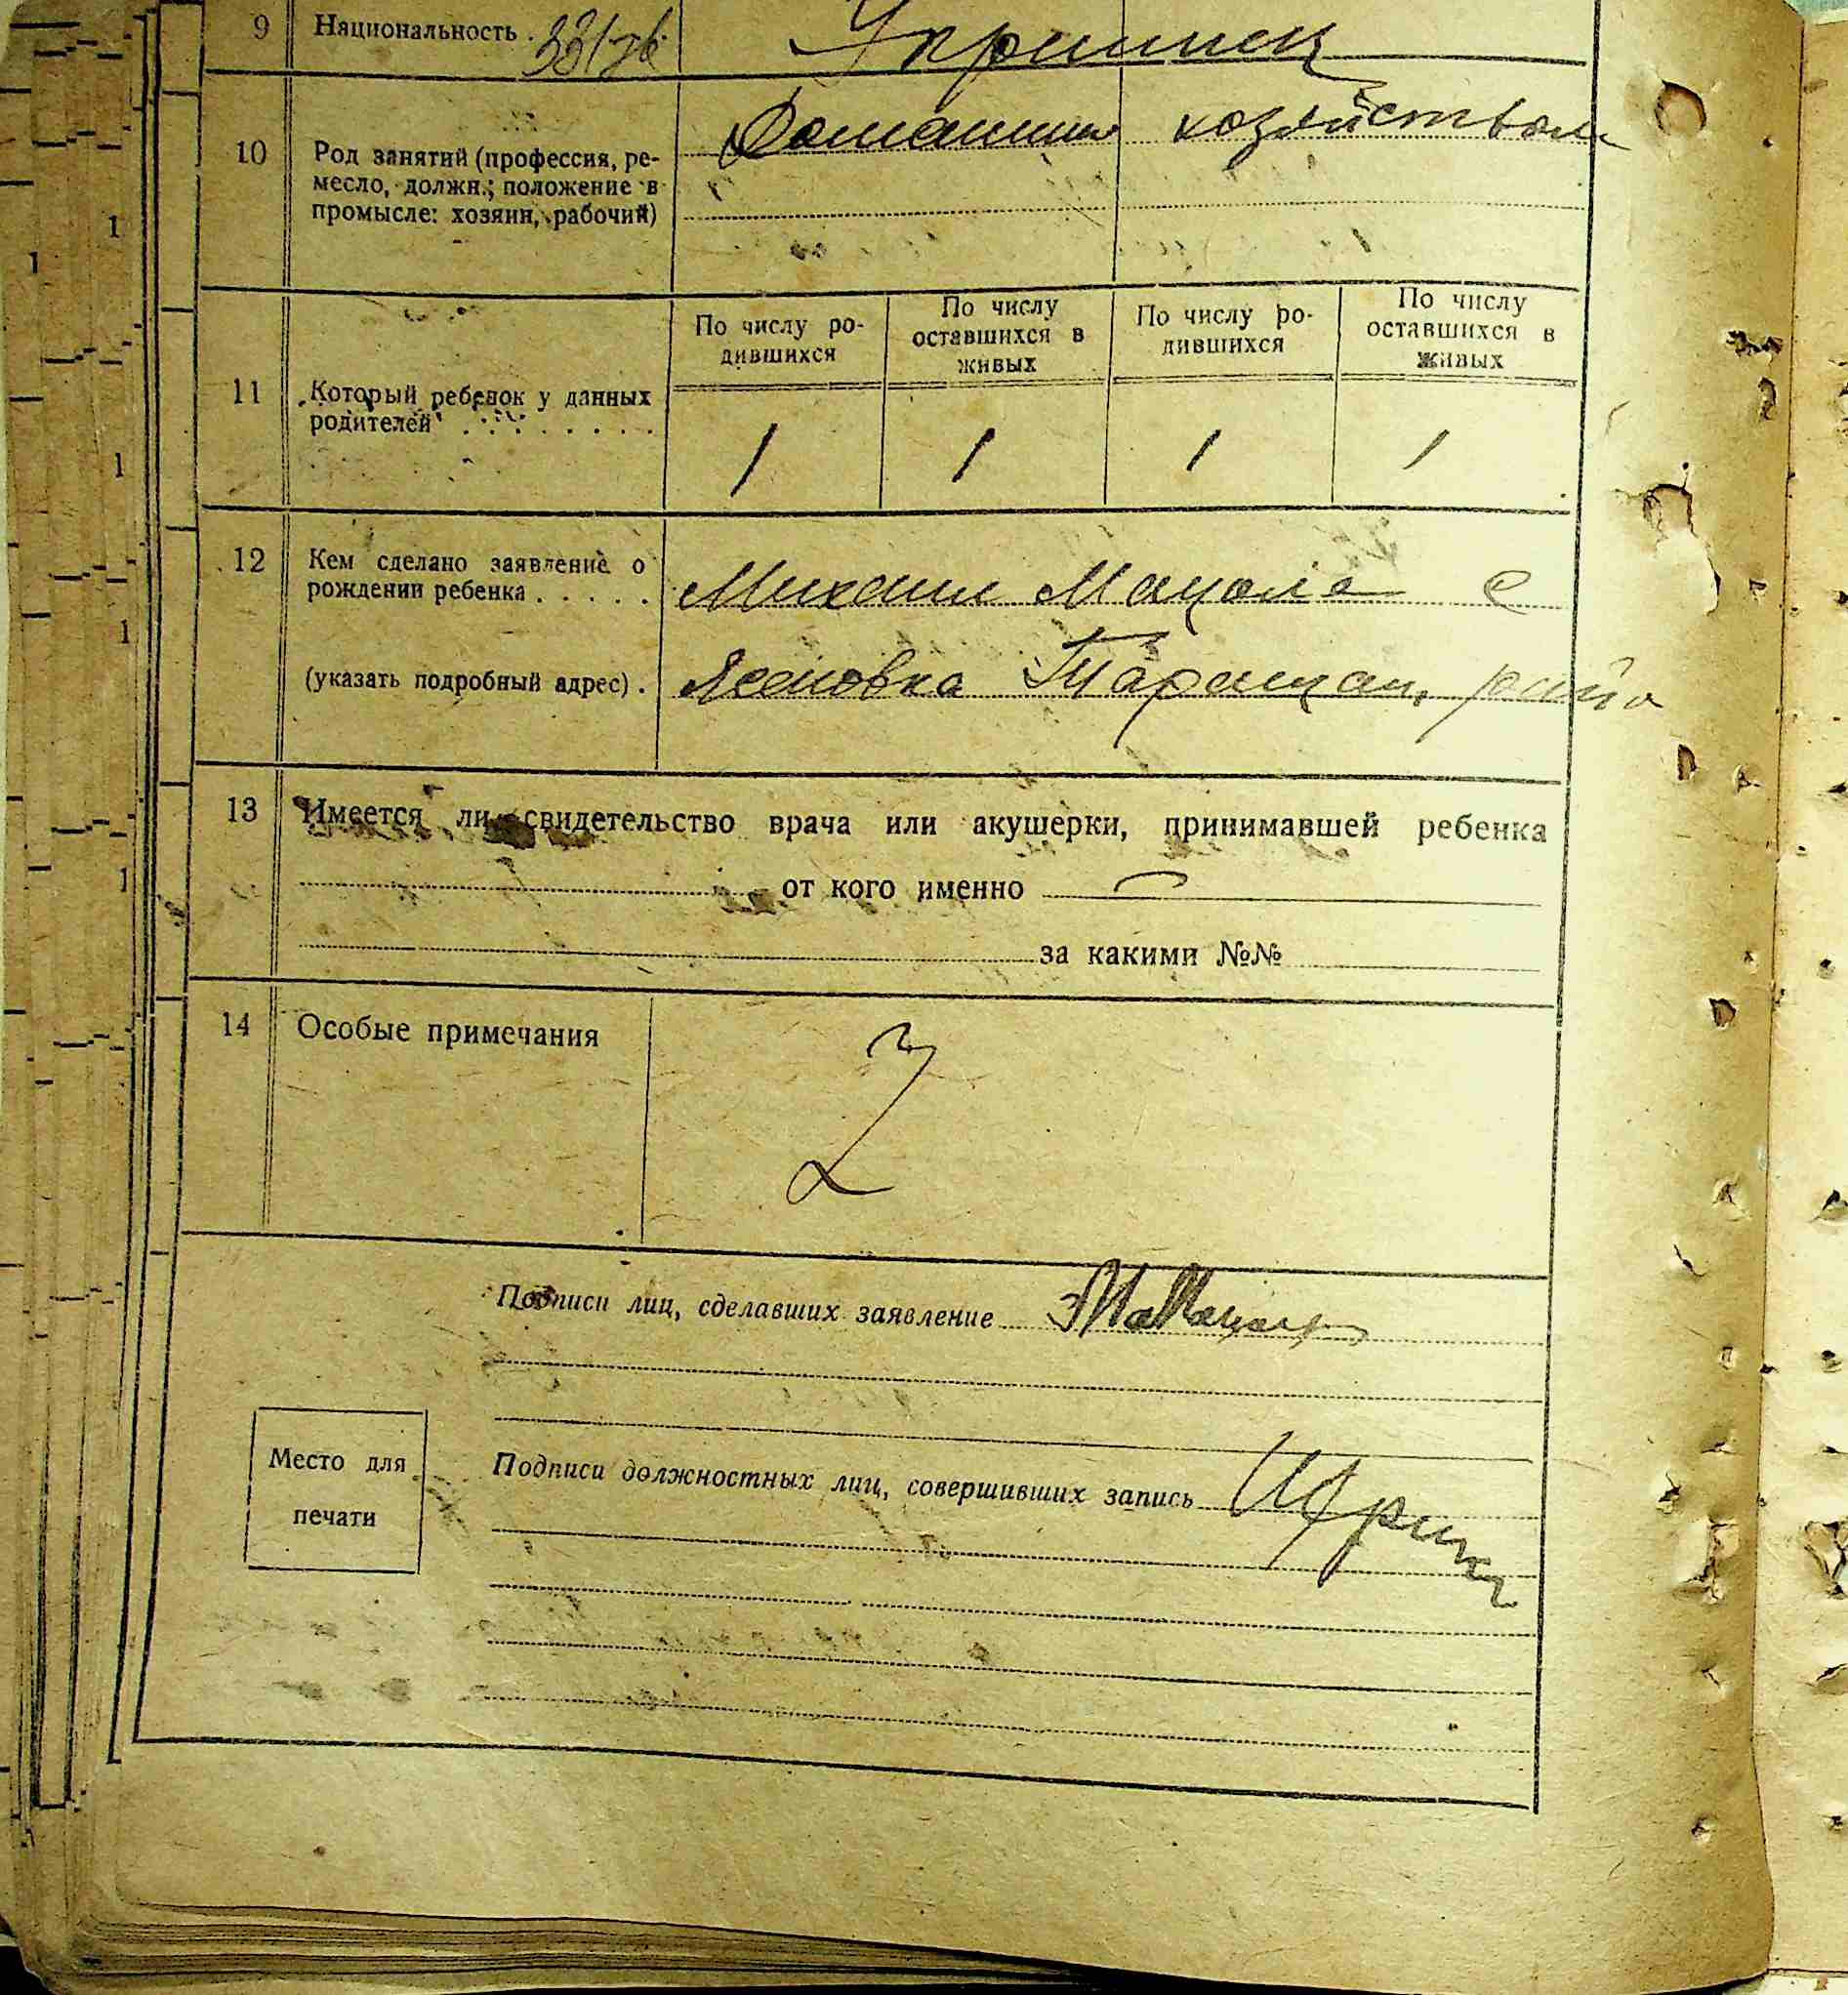 9 Национальность .
10 Род занятий (профессия, ре-
месло, должн.; положение в
промысле: хозяин, рабочий)
Домашним хозяйством
По числу ро-
дившихся
По числу
оставшихся в
живых
По числу ро-
дившихся
По числу
оставшихся в
живых
11 Который ребенок у данных
родителей . . . . . . . .
1 1 1 1
12 Кем сделано заявление о
рождении ребенка . . . . .
Михаил Мацола с
(указать подробный адрес) .
Ясеновка Таращан, райо
13 Имеется ли свидетельство врача или акушерки, принимавшей ребенка
от кого именно
за какими №№
14 Особые примечания
Подписи лиц, сделавших заявление
Место для
печати
Подписи должностных лиц, совершивших запись
1
1
1
1
1